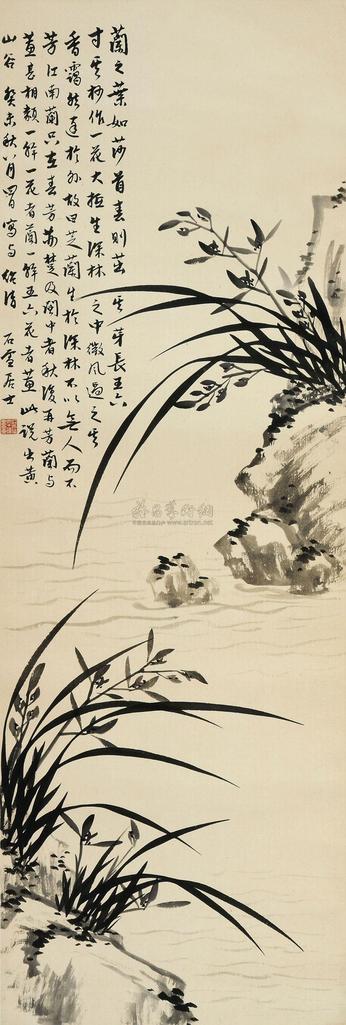 蘭之葉如莎首春則茁其芽長五六
寸其杪作一花大抵生深林之中微風過之其
香靄然達於外故曰芝蘭生於深林不以無人而不
芳江南蘭只在春芳荊楚及閩中者秋復再芳蘭與
蕙甚相類一幹一花者蘭一幹五六花者蕙此說出黃
山谷 癸未秋八月 寫与 石雪居士
雅昌藝術網
www.artron.net